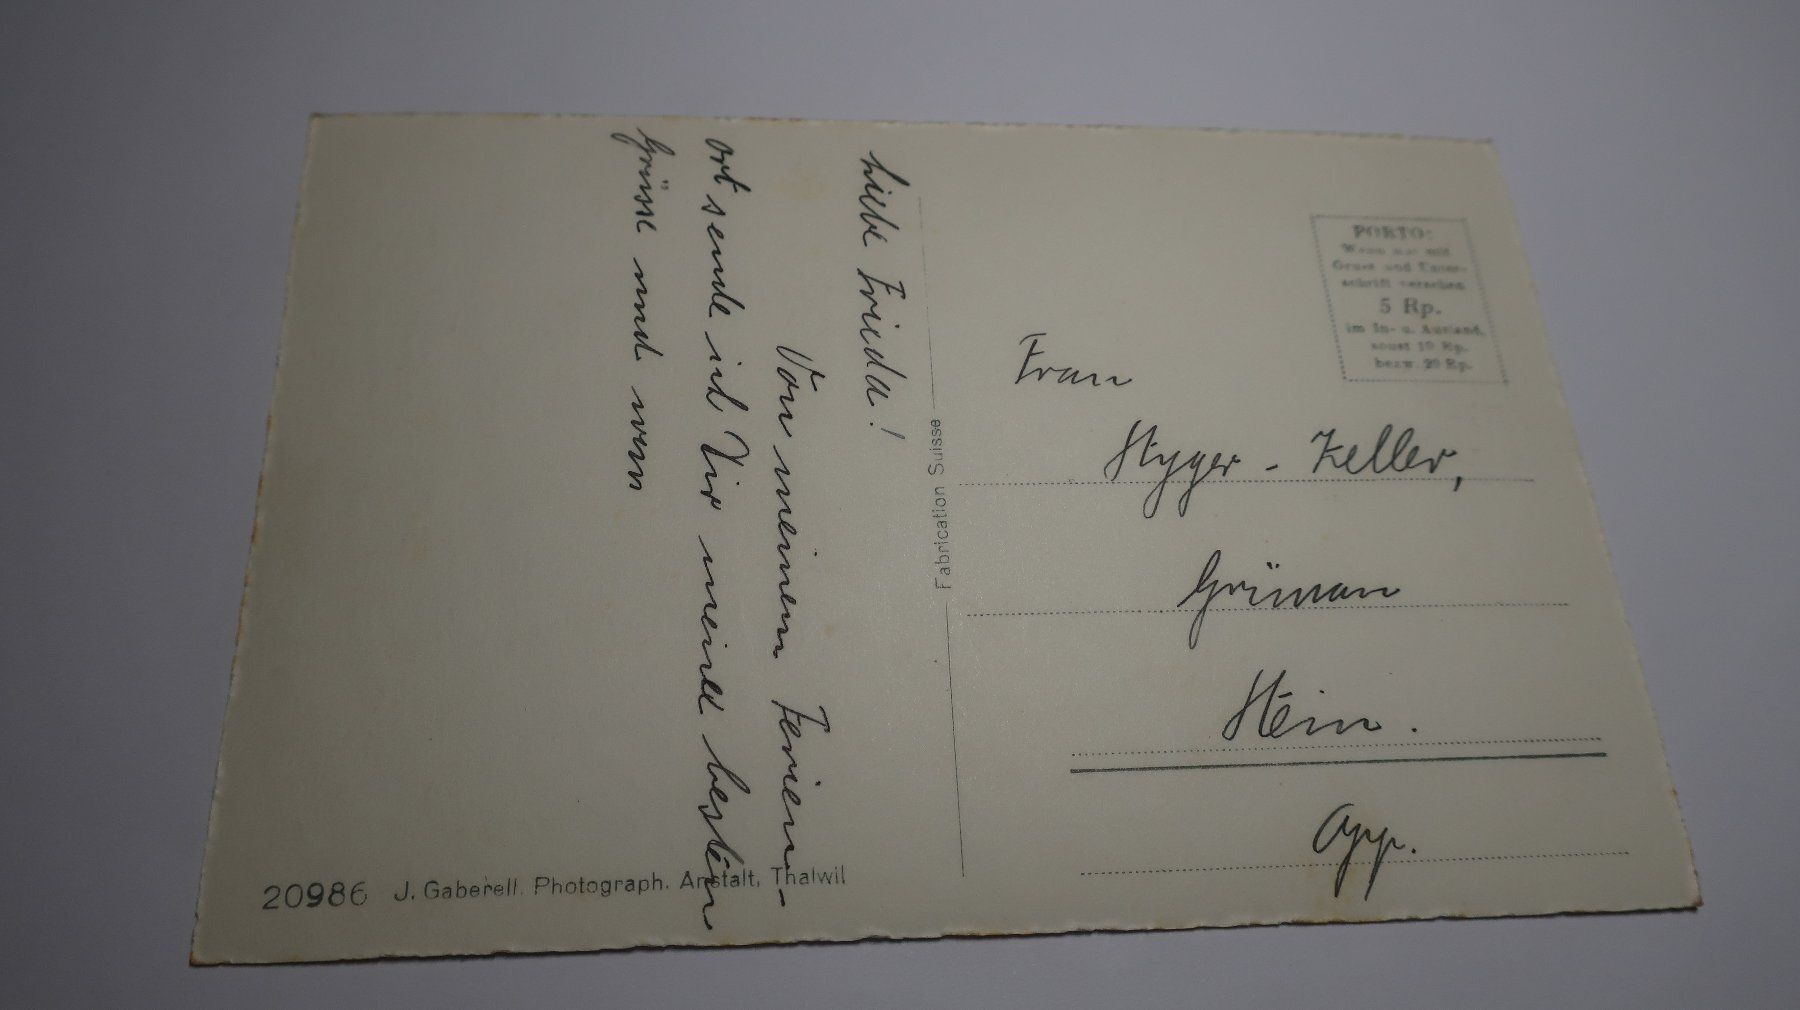 Liebe Frieda!
Von meinem Ferien-
ort sende ich Dir meine besten
Grüsse und wenn
Fabrication Suisse
PORTO:
Wenn nur mit
Gruss und Unter-
schrift versehen
5 Rp.
im In- u. Ausland,
sonst 10 Rp.
bezw. 20 Rp.
Frau
Styger - Zeller,
Grünau
Stein.
App.
20986 J. Gaberell. Photograph. Anstalt, Thalwil